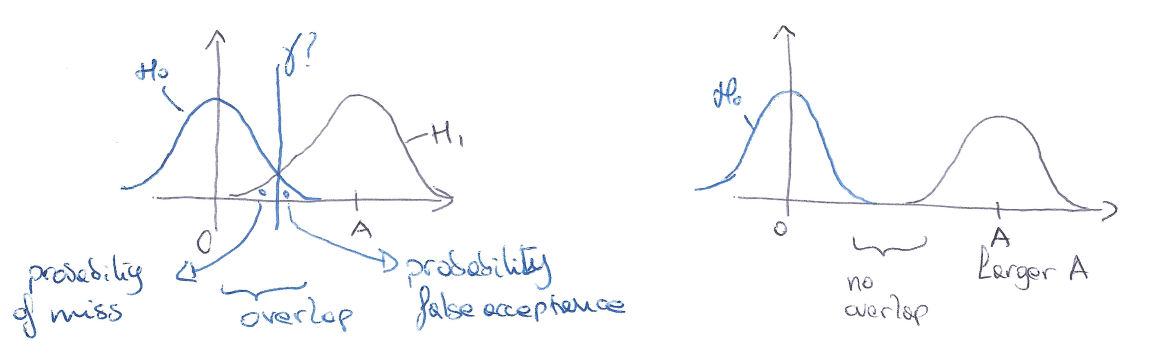 H₀
γ?
H₁
0
A
probability
of miss
overlap
probability
false acceptance
H₀
0
A
Larger A
no
overlap